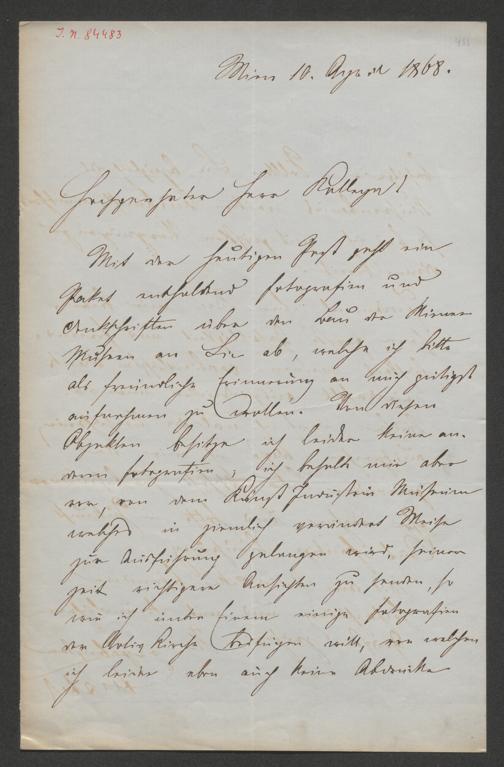 I. N. 84483
Wien 10. April 1868.
Hochgeehrter Herr Kollega!
Mit der heutigen Post geht ein
Paket enthaltend Fotografien und
Denkschriften über den Bau der Wiener
Museen an Sie ab, welche ich bitte
als freundliche Erinnerung an mich gütigst
aufnehmen zu wollen. Von diesen
Objekten besitze ich leider keine an-
dern Fotografien, ich behalte mir aber
vor, von dem Kunst Industrie Museum
welches in ziemlich veränderter Weise
zur Ausführung gelangen wird, seiner
zeit richtigere Ansichten zu senden, so
wie ich unter Einem einige Fotografien
der Votiv Kirche beifügen will, von welchen
ich leider eben auch keine Abdrücke